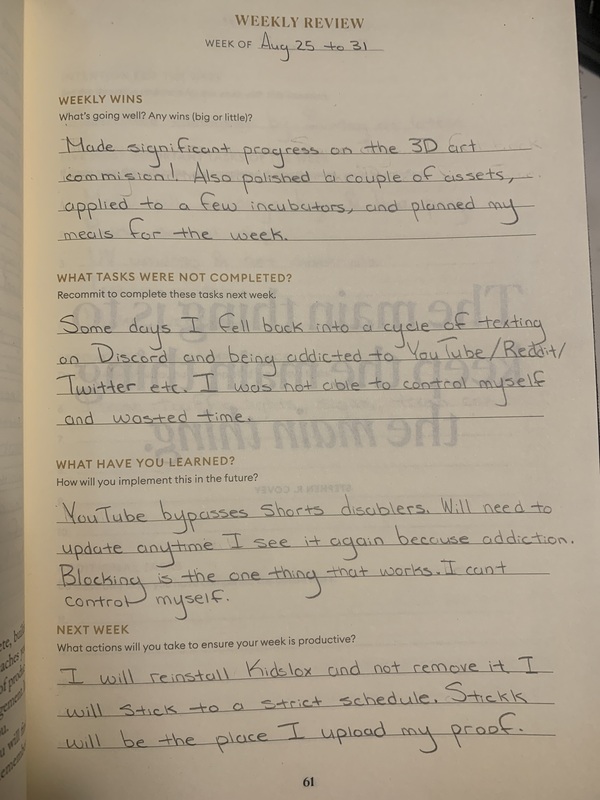 WEEKLY REVIEW
WEEK OF Aug 25 to 31
WEEKLY WINS
What's going well? Any wins (big or little)?
Made significant progress on the 3D art
commision!. Also polished a couple of assets,
applied to a few incubators, and planned my
meals for the week.
WHAT TASKS WERE NOT COMPLETED?
Recommit to complete these tasks next week.
Some days I fell back into a cycle of texting
on Discord and being addicted to YouTube/Reddit/
Twitter etc. I was not able to control myself
and wasted time.
WHAT HAVE YOU LEARNED?
How will you implement this in the future?
YouTube bypasses Shorts disablers. Will need to
update anytime I see it again because addiction.
Blocking is the one thing that works. I cant
control myself.
NEXT WEEK
What actions will you take to ensure your week is productive?
I will reinstall Kidslox and not remove it I
will stick to a strict schedule. Stickk
will be the place I upload my proof.
61